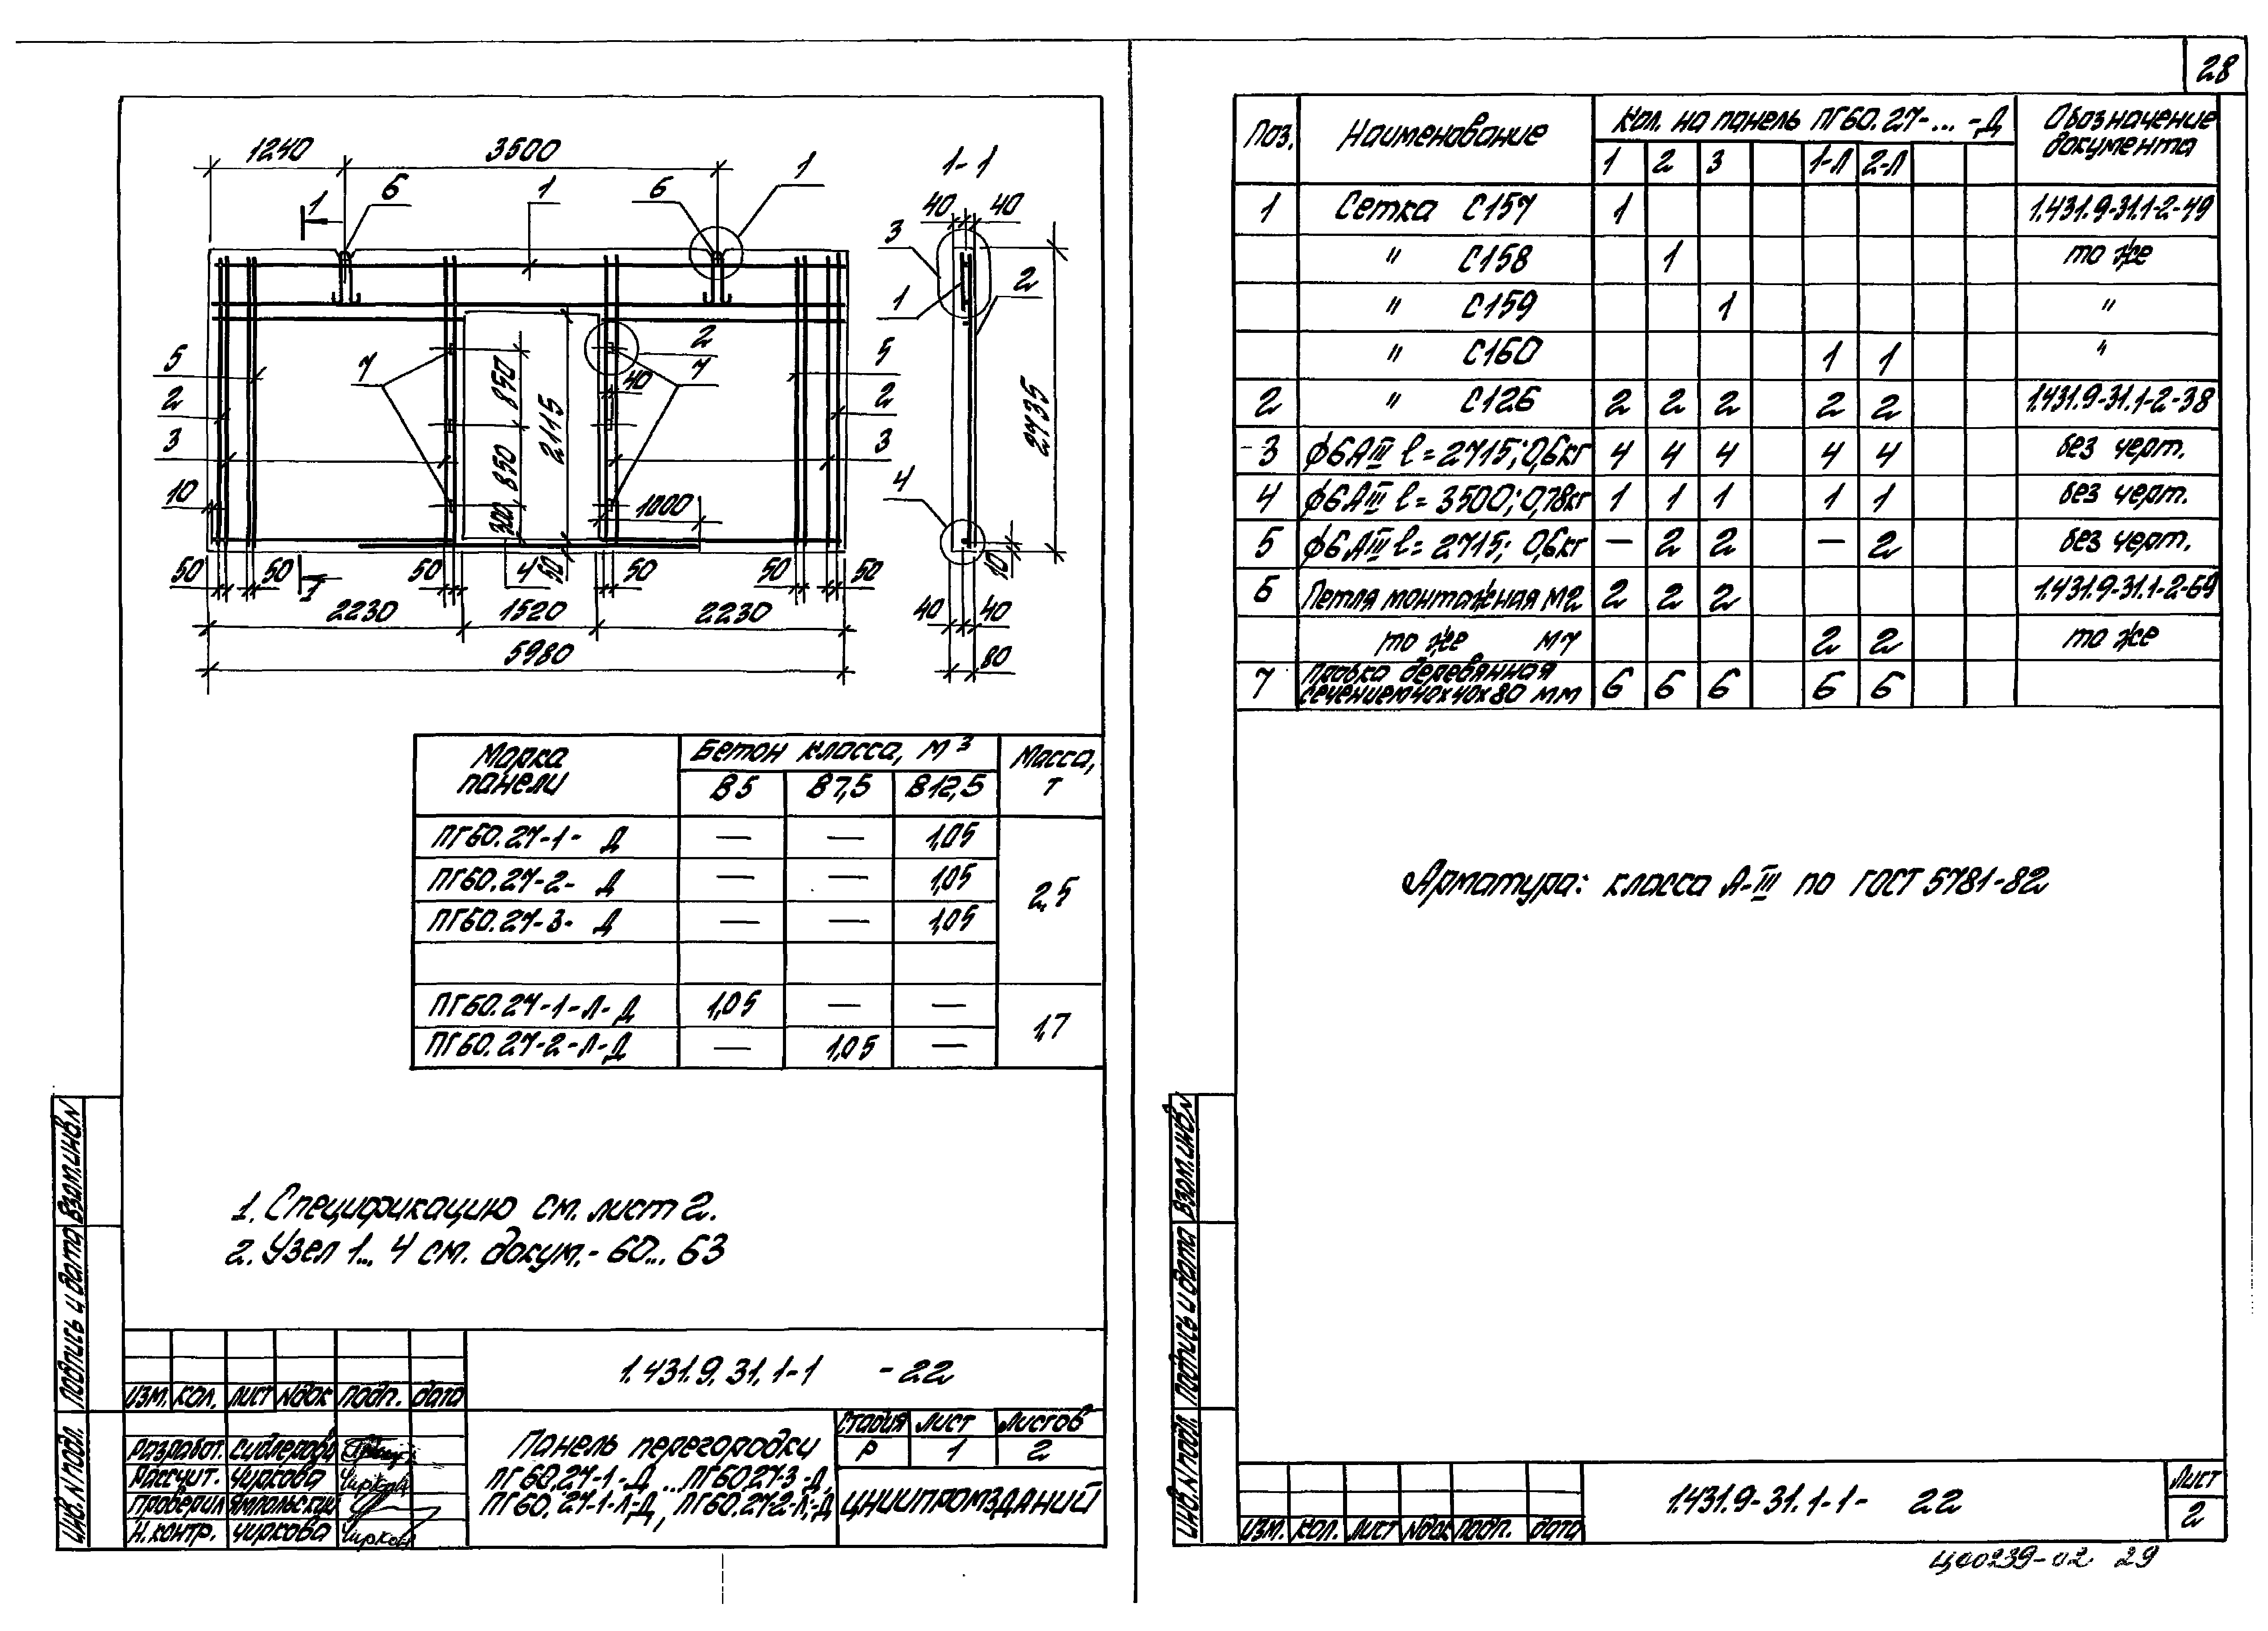 28
1240 3500
6 1 6 1
1
1-1
40 40
3
1
2
5 2 3 10
7
850
850
300
2115
2
40
7
5 2 3
1000
4
2735
50 50 1 50 4 50 50 50 50
2230 1520 2230
5980
40 40
10
80
Марка панели | Бетон класса, м³ | Масса, т
В5 | В7,5 | В12,5
ПГ60.27-1- Д — — 1,05
ПГ60.27-2- Д — — 1,05 2,5
ПГ60.27-3- Д — — 1,05
ПГ60.27-1-Л-Д 1,05 — — 1,7
ПГ60.27-2-Л-Д — 1,05 —
1. Спецификацию см. лист 2.
2. Узел 1... 4 см. докум.- 60... 63
Взам.инв.N
Подпись и дата
Инв.N подл.
1.431.9.31.1-1 -22
Изм. Кол. Лист Nдок Подп. Дата
Разработ.
Рассчит. Чиркова
Проверил Ямпольский
Н.контр. Чиркова
Панель перегородки
ПГ60.27-1-Д...ПГ60.27-3-Д,
ПГ60.27-1-Л-Д, ПГ60.27-2-Л-Д
Стадия Лист Листов
Р 1 2
ЦНИИПРОМЗДАНИЙ
Поз. | Наименование | Кол. на панель ПГ60.27-...-Д | Обозначение документа
1 2 3 1-Л 2-Л
1 Сетка С157 1 1.431.9-31.1-2-49
" С158 1 то же
" С159 1 "
" С160 1 1 "
2 " С126 2 2 2 2 2 1.431.9-31.1-2-38
3 ϕ6АIII l=2715; 0,6кг 4 4 4 4 4 без черт.
4 ϕ6АIII l=3500; 0,78кг 1 1 1 1 1 без черт.
5 ϕ6АIII l=2715; 0,6кг — 2 2 — 2 без черт.
6 Петля монтажная М2 2 2 2 1.431.9-31.1-2-69
то же М7 2 2 то же
7 Пробка деревянная сечением 40х40х80 мм 6 6 6 6 6
Арматура: класса А-III по ГОСТ 5781-82
Взам.инв.N
Подпись и дата
Инв.N подл.
Изм. Кол. Лист Nдок Подп. Дата
1.431.9-31.1-1- 22
Лист
2
Ц00239-02 29